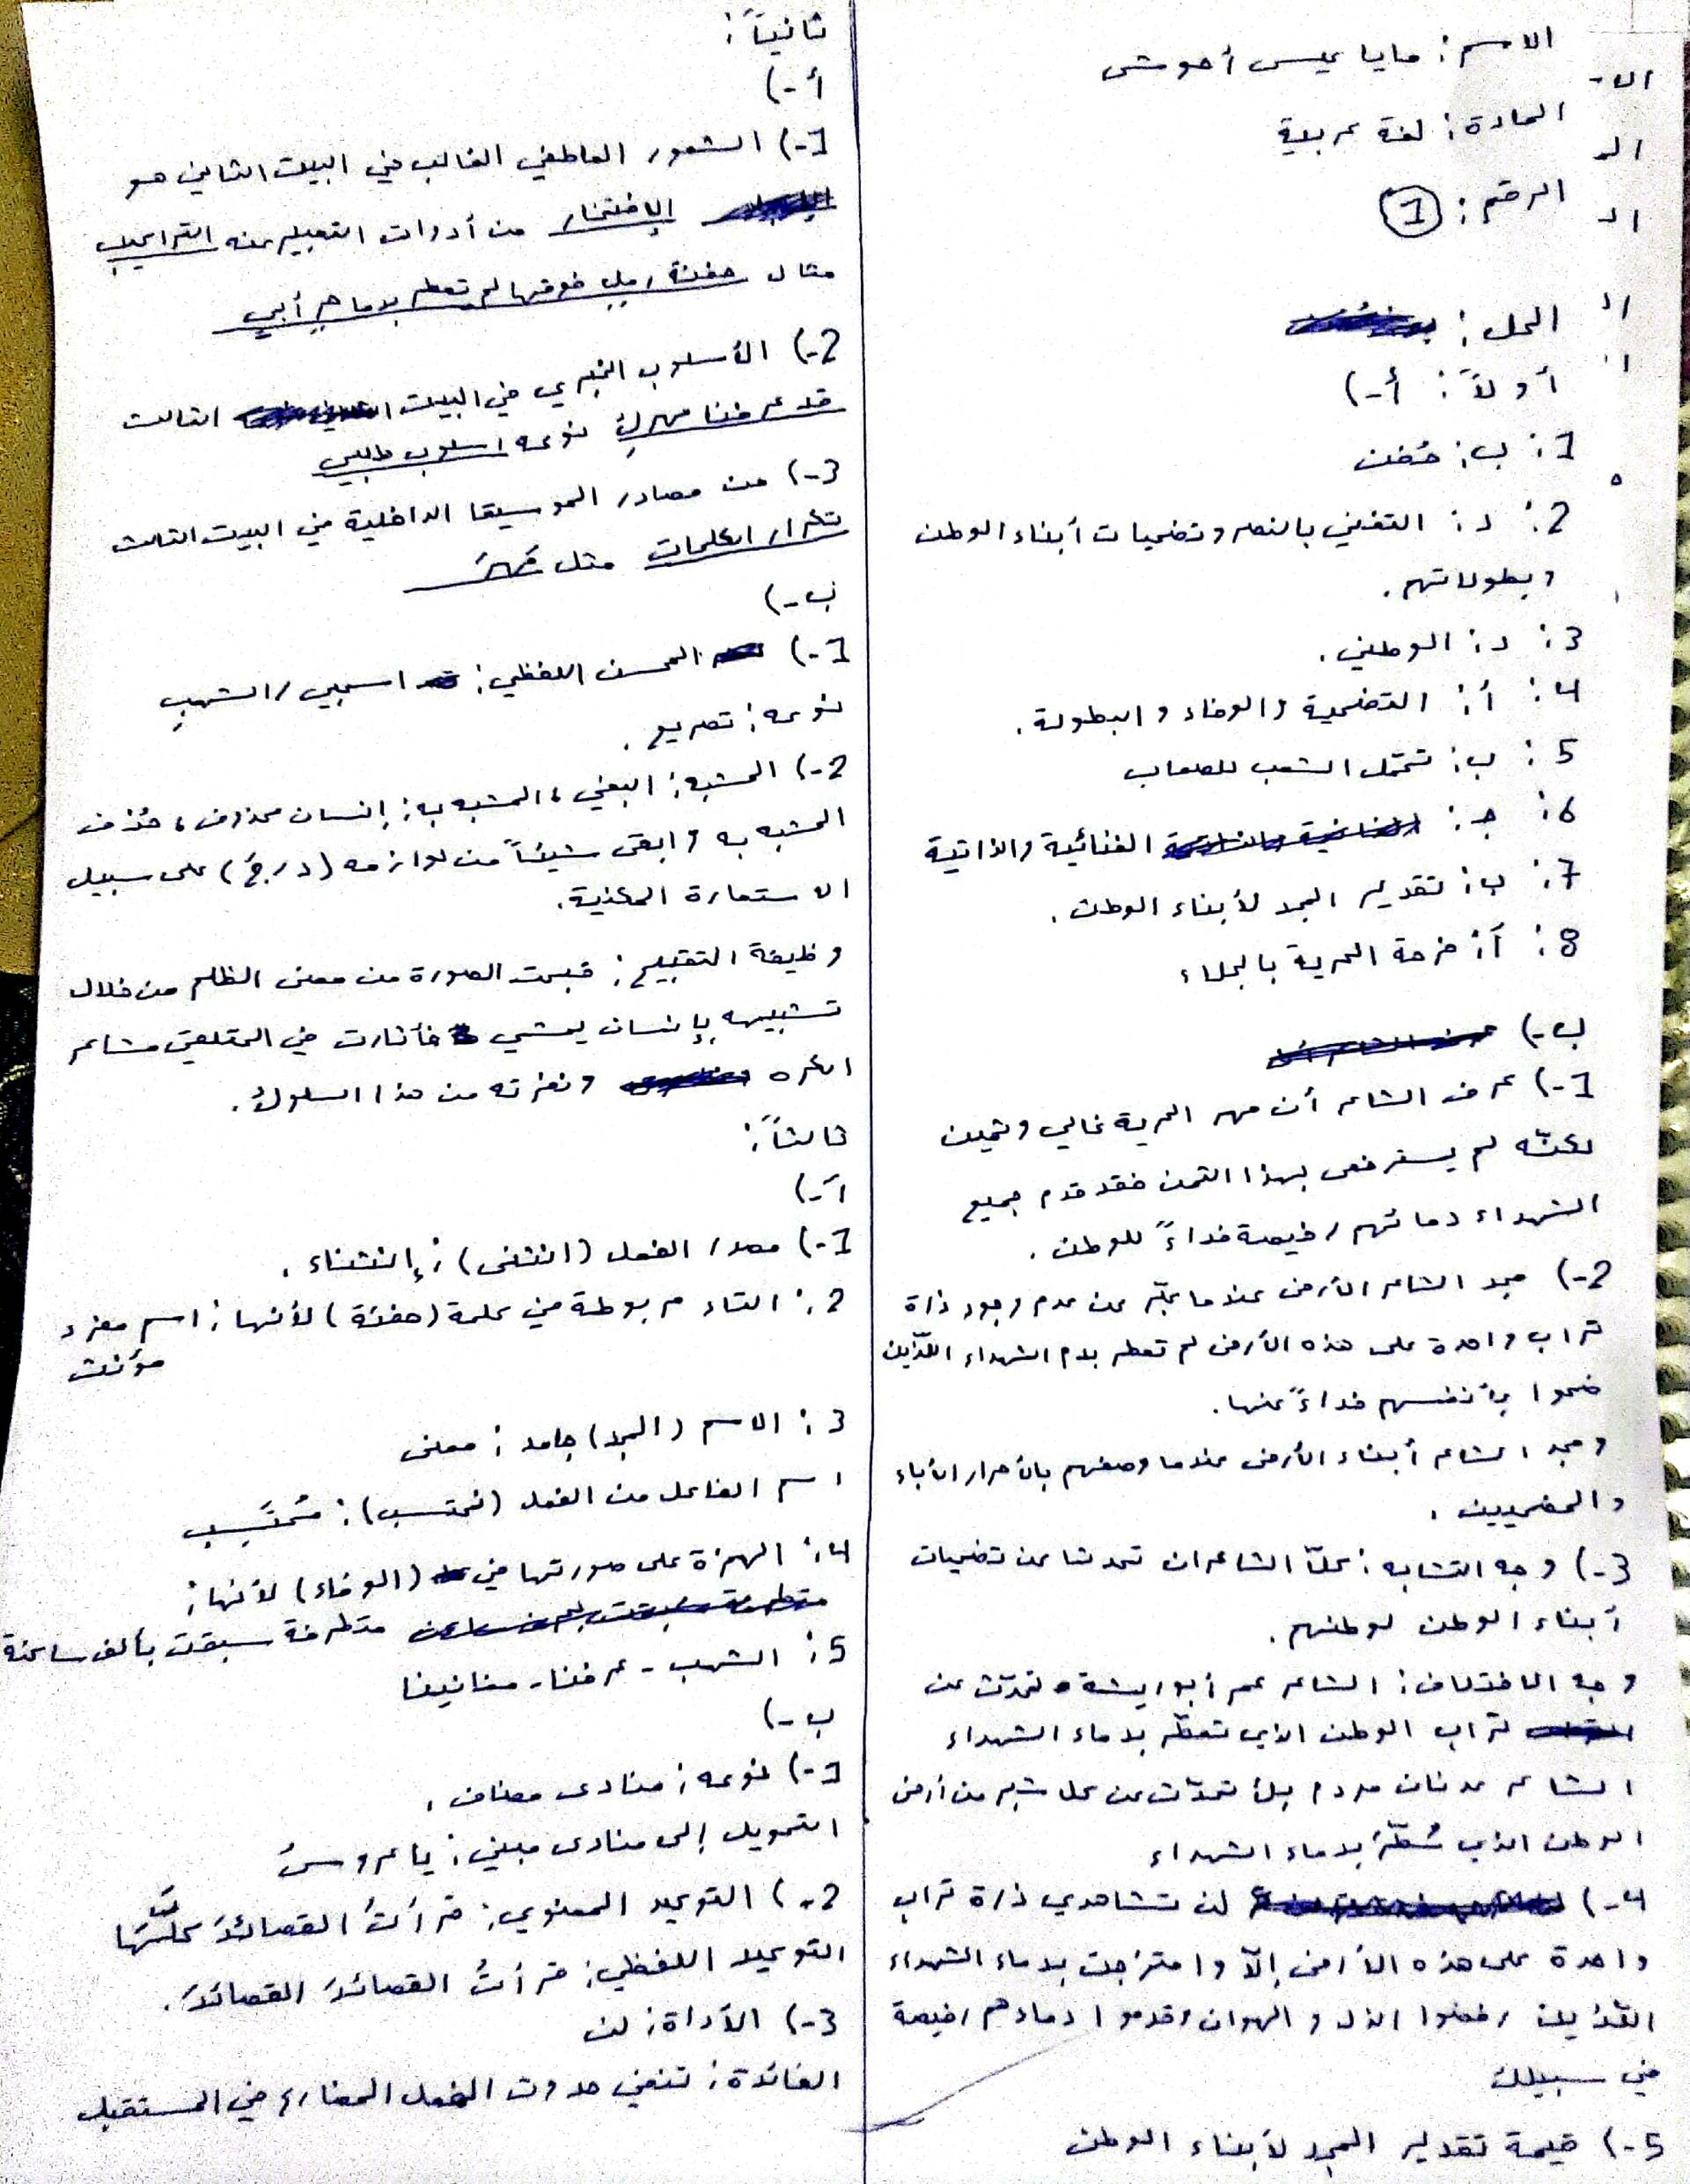 الاسم: مايا عيسى أحوش
المادة: لغة عربية
الرقم: 1
الحل:
أولاً: أ-)
1: ب: حُفن
2: د: التغني بالنصر وتضحيات أبناء الوطن
وبطولاتهم.
3: د: الوطني.
4: أ: التضحية والوفاء والبطولة.
5: ب: تحمّل الشعب للصعاب
6: جـ: الغنائية والذاتية
7: ب: تقدير المجد لأبناء الوطن.
8: أ: فرحة الحرية بالجلاء
ب-)
1-) عرف الشاعر أن مهر الحرية غالي وثمين
لكنّه لم يسترخص بهذا الثمن فقد قدم جميع
الشهداء دمائهم رخيصة فداءً للوطن.
2-) مجد الشاعر الأرض عندما عبّر عن عدم وجود ذرة
تراب واحدة على هذه الأرض لم تعطر بدم الشهداء اللذين
ضحوا بأنفسهم فداءً عنها.
ومجد الشاعر أبناء الأرض عندما وصفهم بالأحرار الأباء
والمضحيين.
3-) وجه التشابه: كلّا الشاعران تحدثنا عن تضحيات
أبناء الوطن لوطنهم.
وجه الاختلاف: الشاعر عمر أبو ريشة تحدّث عن
تراب الوطن الذي تعطّر بدماء الشهداء
الشاعر عدنان مردم بك تحدّث عن كل شبر من أرض
الوطن الذي سُطّرَ بدماء الشهداء
4-) لن تشاهدي ذرة تراب
واحدة على هذه الأرض إلّا وامتزجت بدماء الشهداء
اللّذين رفضوا الذل والهوان وقدموا دماءهم رخيصة
في سبيلك
5-) قيمة تقدير المجد لأبناء الوطن
ثانياً:
أ-)
1-) الشعور العاطفي الغالب في البيت الثاني هو
الإفتخار من أدوات التعبير عنه التراكيب
مثال حفنة رمل فوقها لم تعطر بدما حرٍ أبي
2-) الأسلوب الخبري في البيت الثالث
قد عرفنا مهرك نوعه اسلوب طلبي
3-) من مصادر الموسيقا الداخلية في البيت الثالث
تكرار الكلمات مثل مَهرَ
ب-)
1-) المحسن اللفظي: اسحبي/الشهبِ
نوعه: تصريع.
2-) المشبه: البغي، المشبه به: إنسان محذوف، حُذف
المشبه به وابقى شيئاً من لوازمه (درجَ) على سبيل
الاستعارة المكنية.
وظيفة التقبيح: قبحت الصورة من معنى الظلم من خلال
تشبيهه بإنسان يمشي فأثارت في المتلقي مشاعر
الكره ونفرته من هذا السلوك.
ثالثاً:
أ-)
1-) مصدر الفعل (انتشى): إنتشاء.
2: التاء مربوطة في كلمة (حفنة) لأنها: اسم مفرد
مؤنث
3: الاسم (المجد) جامد: معنى
اسم الفاعل من الفعل (نحتسب): مُحتَسِب
4: الهمزة على صورتها في (الوفاء) لأنها:
متطرفة سبقت بألف ساكنة
5: الشهب - عرفنا - مغانينا
ب-)
1-) نوعه: منادى مضاف.
التحويل إلى منادى مبني: يا عروسُ
2-) التوكيد المعنوي: قرأتُ القصائدَ كلَّها
التوكيد اللفظي: قرأتُ القصائدَ القصائدَ.
3-) الأداة: لن
الفائدة: تنفي حدوث الفعل المضارع في المستقبل